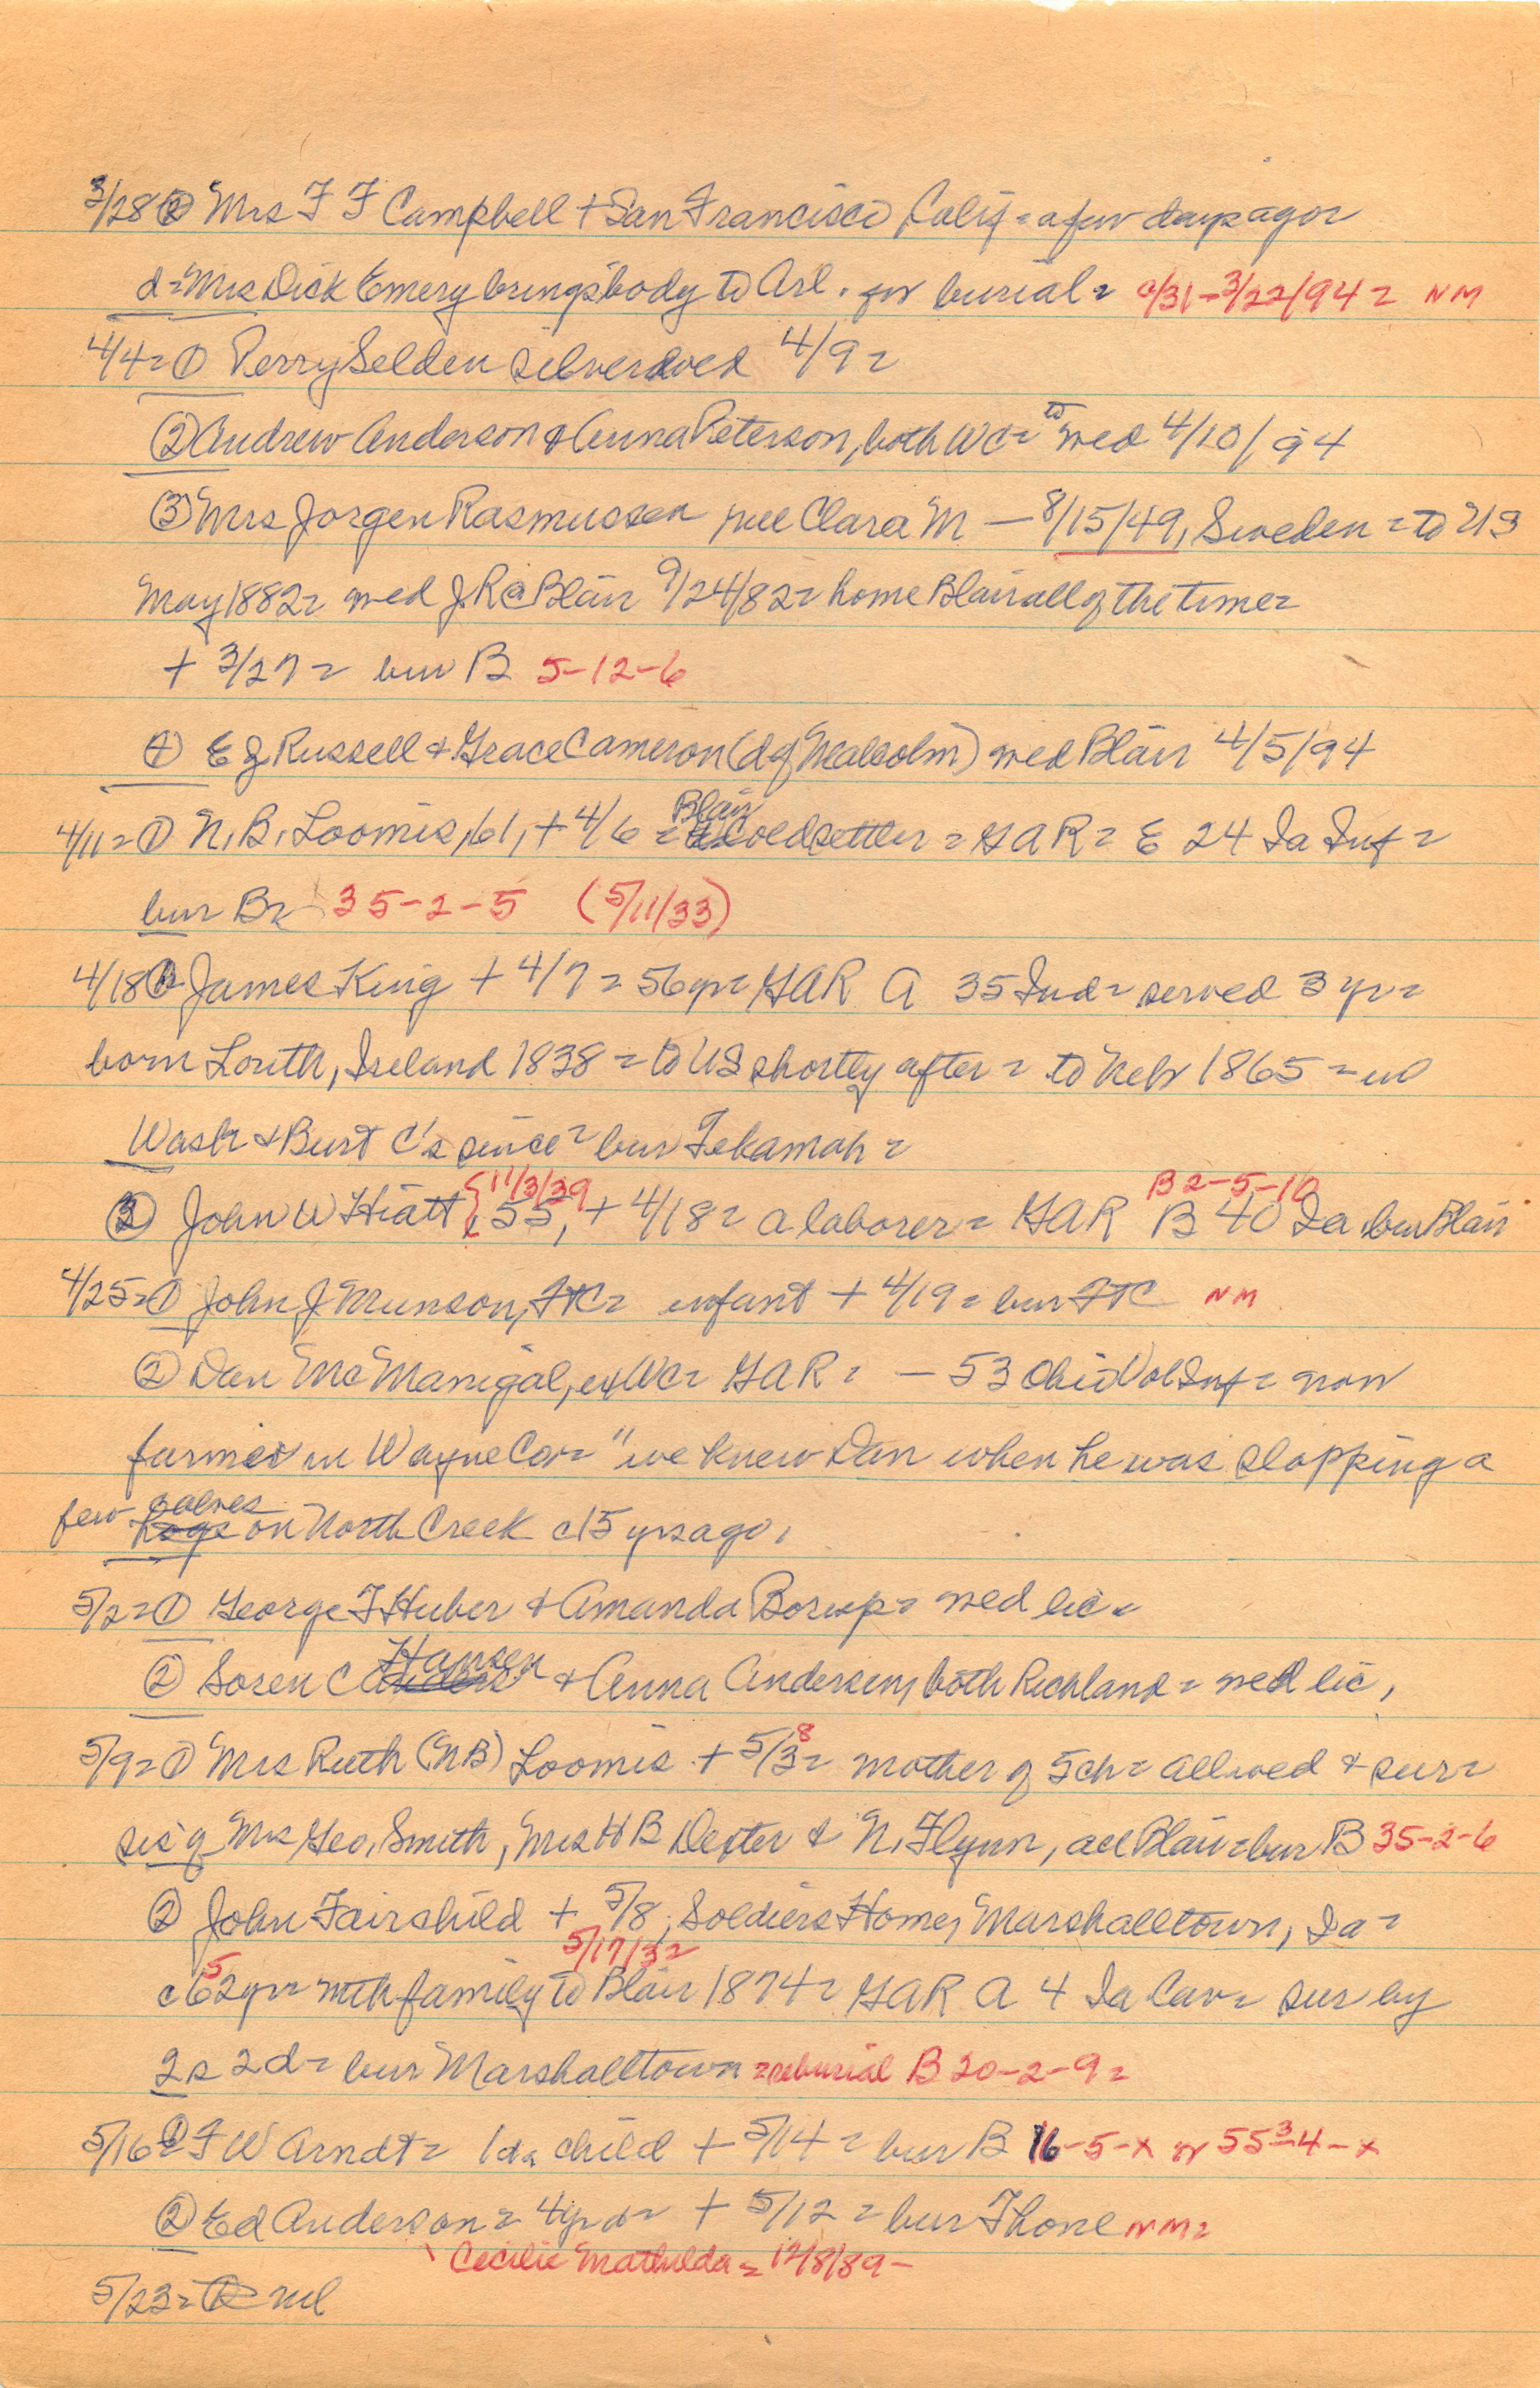 3/28 ② Mrs F F Campbell + San Francisco, Calif = a few days ago =
d = Mrs Dick Emery brings body to Arl. for burial = c/31 - 3/22/94 = NM
4/4 = ① Perry Selden silver wed 4/9 =
② Andrew Anderson & Anna Peterson, both WC = to wed 4/10/94
③ Mrs Jorgen Rasmussen nee Clara M — 8/15/49, Sweden = to US
May 1882 = wed J R @ Blair 9/24/82 = home Blair all of the time =
+ 3/27 = bur B 5-12-6
④ E J Russell & Grace Cameron (d of Malcolm) wed Blair 4/5/94
4/11 = ① N. B. Loomis, 61, + 4/6 = Blair old settler = GAR = E 24 Ia Inf =
bur B = 35-2-5 (5/11/33)
4/18 ① James King + 4/7 = 56 yr = GAR A 35 Ind = served 3 yr =
born Louth, Ireland 1838 = to US shortly after = to Nebr 1865 = in
Wash & Burt C's since = bur Tekamah =
11/3/39 B 2-5-10
② John W Hiatt, 55, + 4/18 = a laborer = GAR B 40 Ia bur Blair
4/25 = ① John J Munson, FTC = infant + 4/19 = bur FTC NM
② Dan McManigal, ex WC = GAR = — 53 Ohio Vol Inf = now
farmer in Wayne Co = "we knew Dan when he was slopping a
few hogs calves on North Creek c15 yrs ago,
5/2 = ① George F Huber & Amanda Borup = wed lic =
② Soren C Hansen & Anna Andersen, both Richland = wed lic,
5/9 = ① Mrs Ruth (NB) Loomis + 5/3 8 = mother of 5 ch = all wed & sur =
sis of Mrs Geo. Smith, Mrs H B Dexter & N. Flynn, all Blair = bur B 35-2-6
② John Fairchild + 5/8, Soldiers Home, Marshalltown, Ia =
5 5/17/32
c 62 yr = with family to Blair 1874 = GAR A 4 Ia Cav = sur by
2s 2d = bur Marshalltown = reburial B 20-2-9 =
5/16 ① = F W Arndt = 1 da child + 5/14 = bur B 16-5-x or 55 3-4-x
② Ed Anderson = 4 yr d = + 5/12 = bur Fhone NM =
Cecilie Mathilda = 12/8/89 -
5/23 = nil